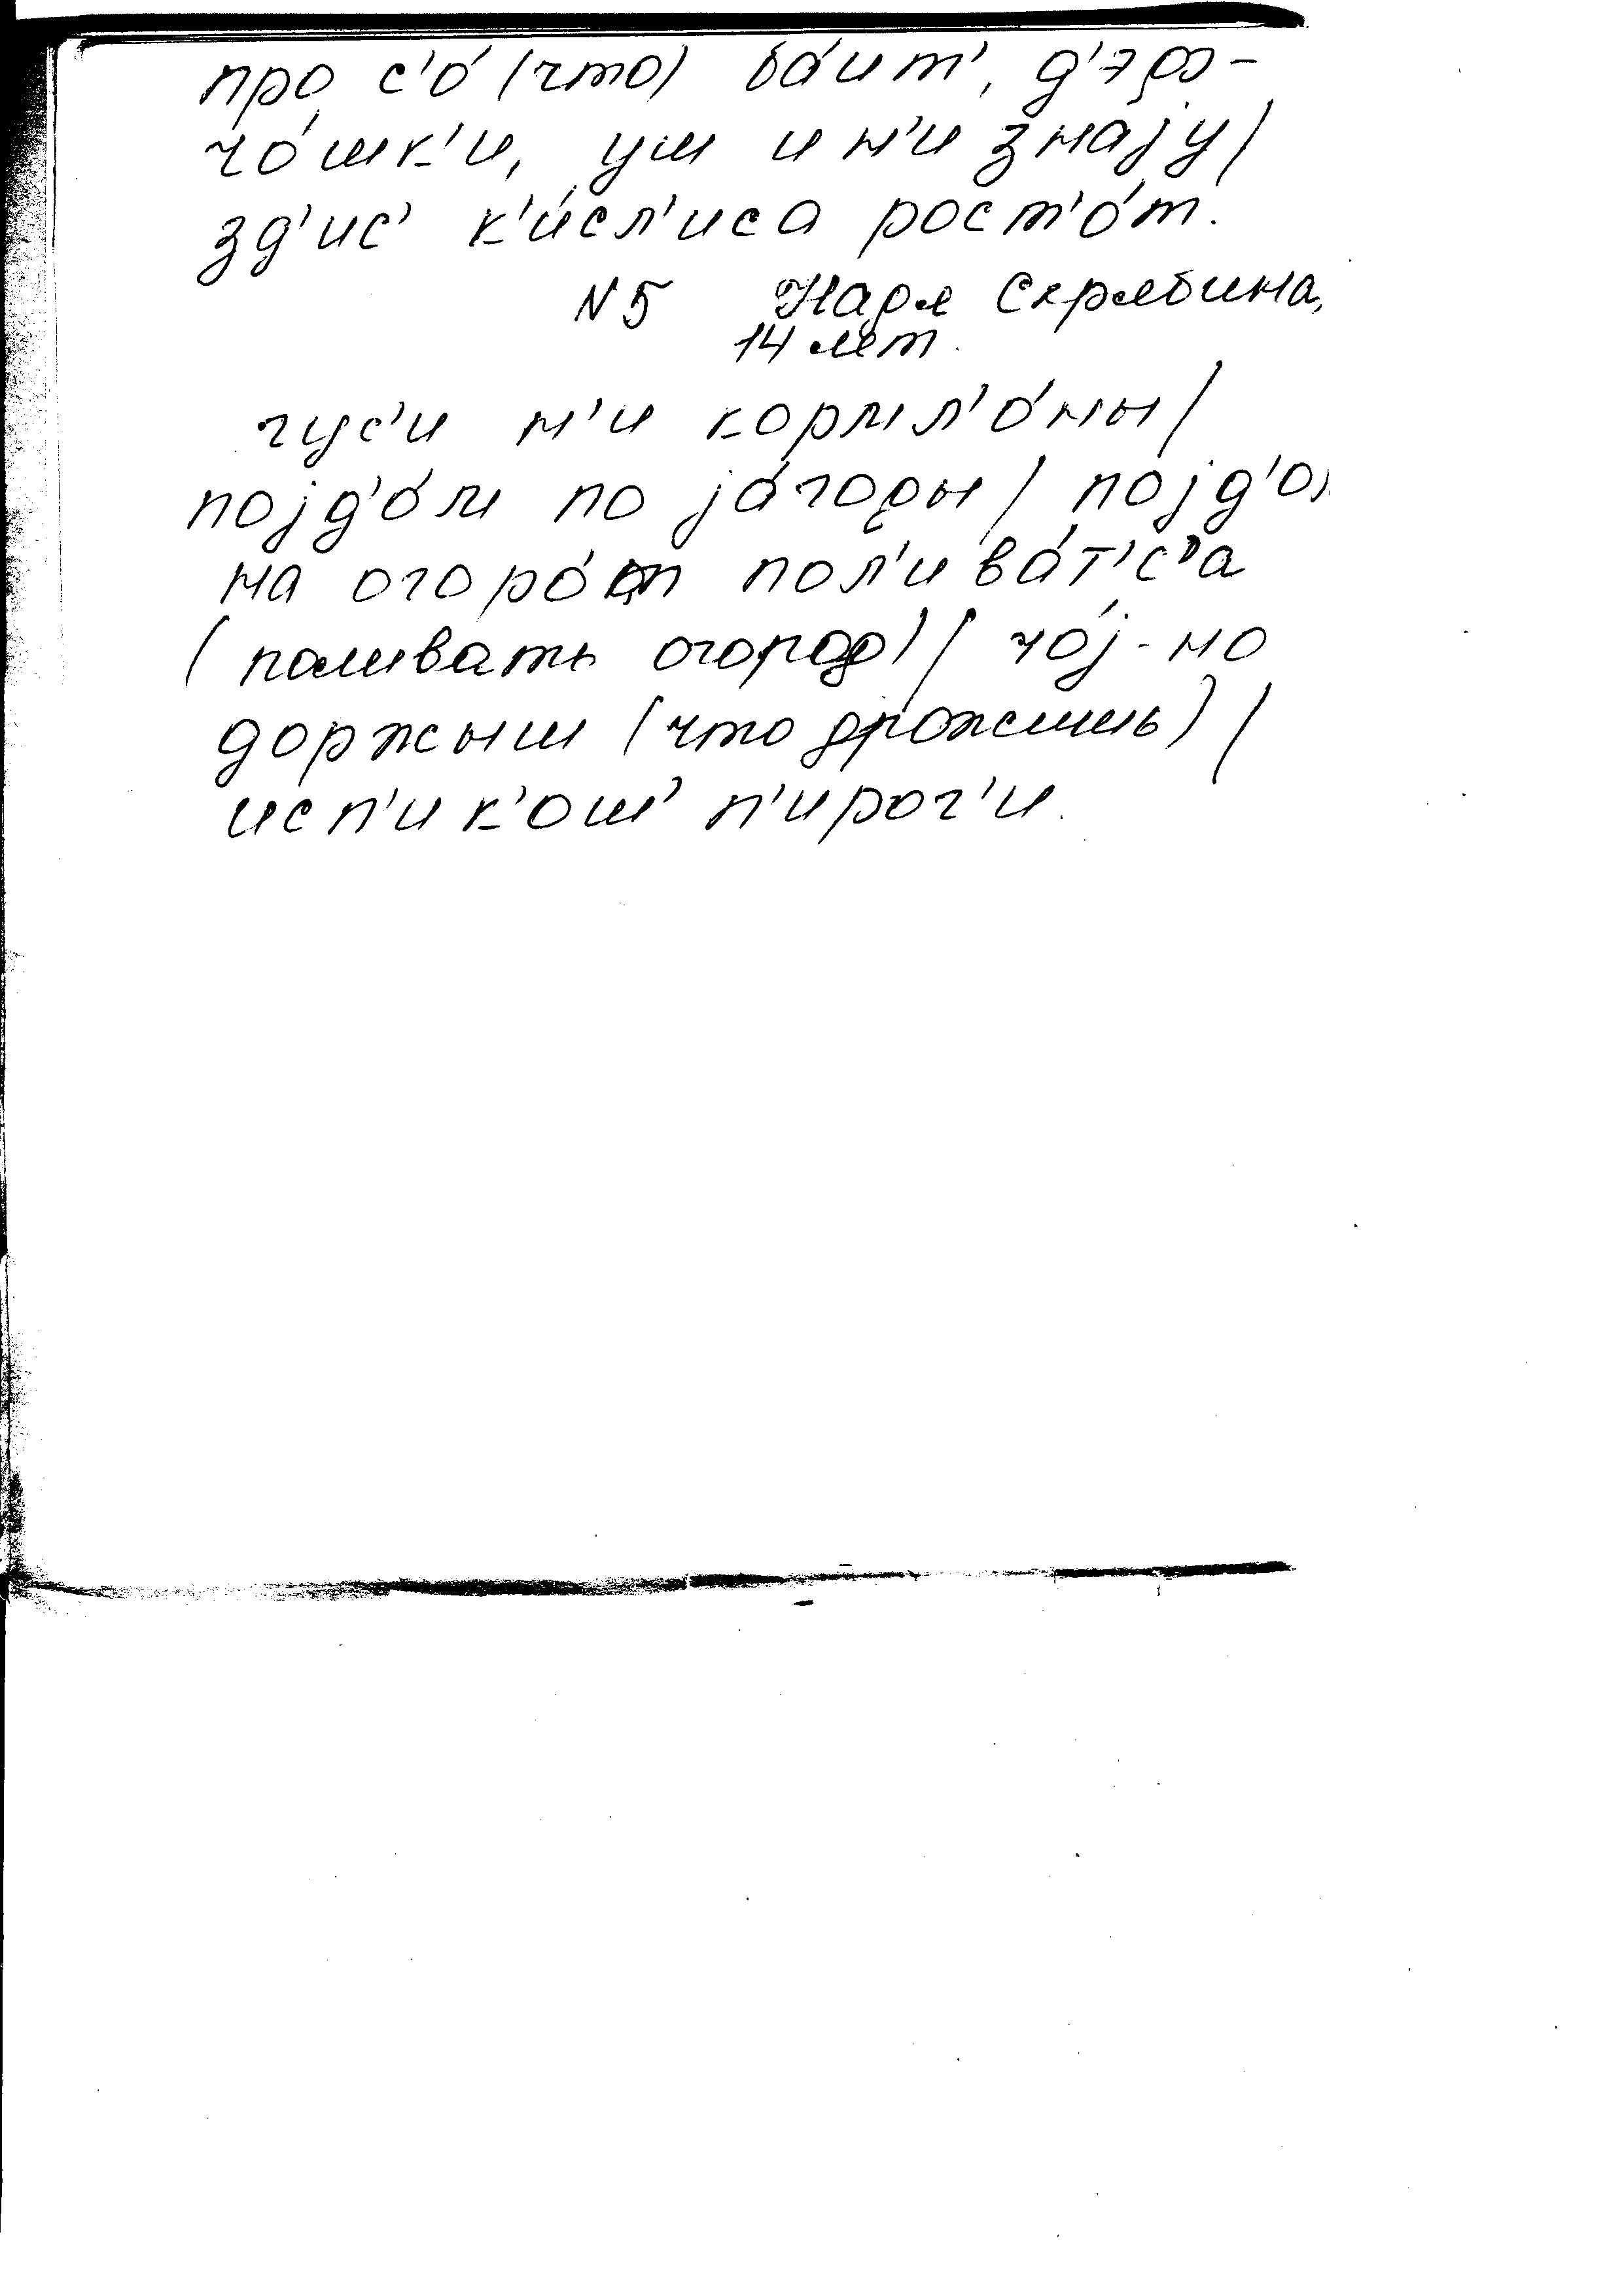 про с'о́ (что) ба́ит', д'эв-
чо́шк'и, уш и н'и знају/
зд'ис' к'и́сл'иса рост'о́т.
N5 Надя Скрябина,
14 лет.
гус'и н'и кормл'о́ны/
појд'о́м по ја́годы/ појд'ом
на огоро́т пол'ива́т'с'а
(поливать огород)/ чо́ј-но
доржыш (что дрожишь)/
исп'ик'ош' п'ирог'и.